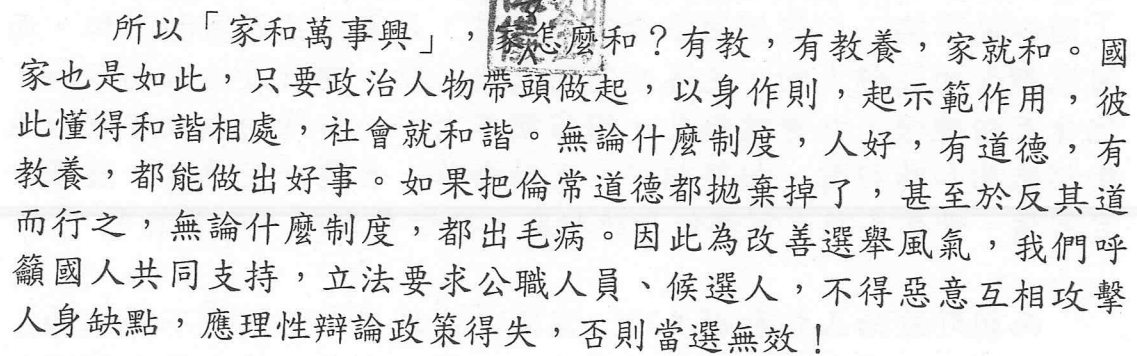 所以「家和萬事興」，家怎麼和？有教，有教養，家就和。國
家也是如此，只要政治人物帶頭做起，以身作則，起示範作用，彼
此懂得和諧相處，社會就和諧。無論什麼制度，人好，有道德，有
教養，都能做出好事。如果把倫常道德都拋棄掉了，甚至於反其道
而行之，無論什麼制度，都出毛病。因此為改善選舉風氣，我們呼
籲國人共同支持，立法要求公職人員、候選人，不得惡意互相攻擊
人身缺點，應理性辯論政策得失，否則當選無效！